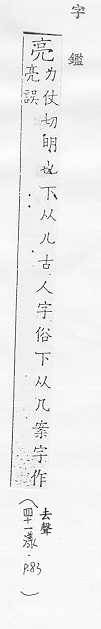 字鑑
亮
力仗切明也下从儿古人字俗下从几案字作
亮誤
去聲
(四十一漾·P.83)